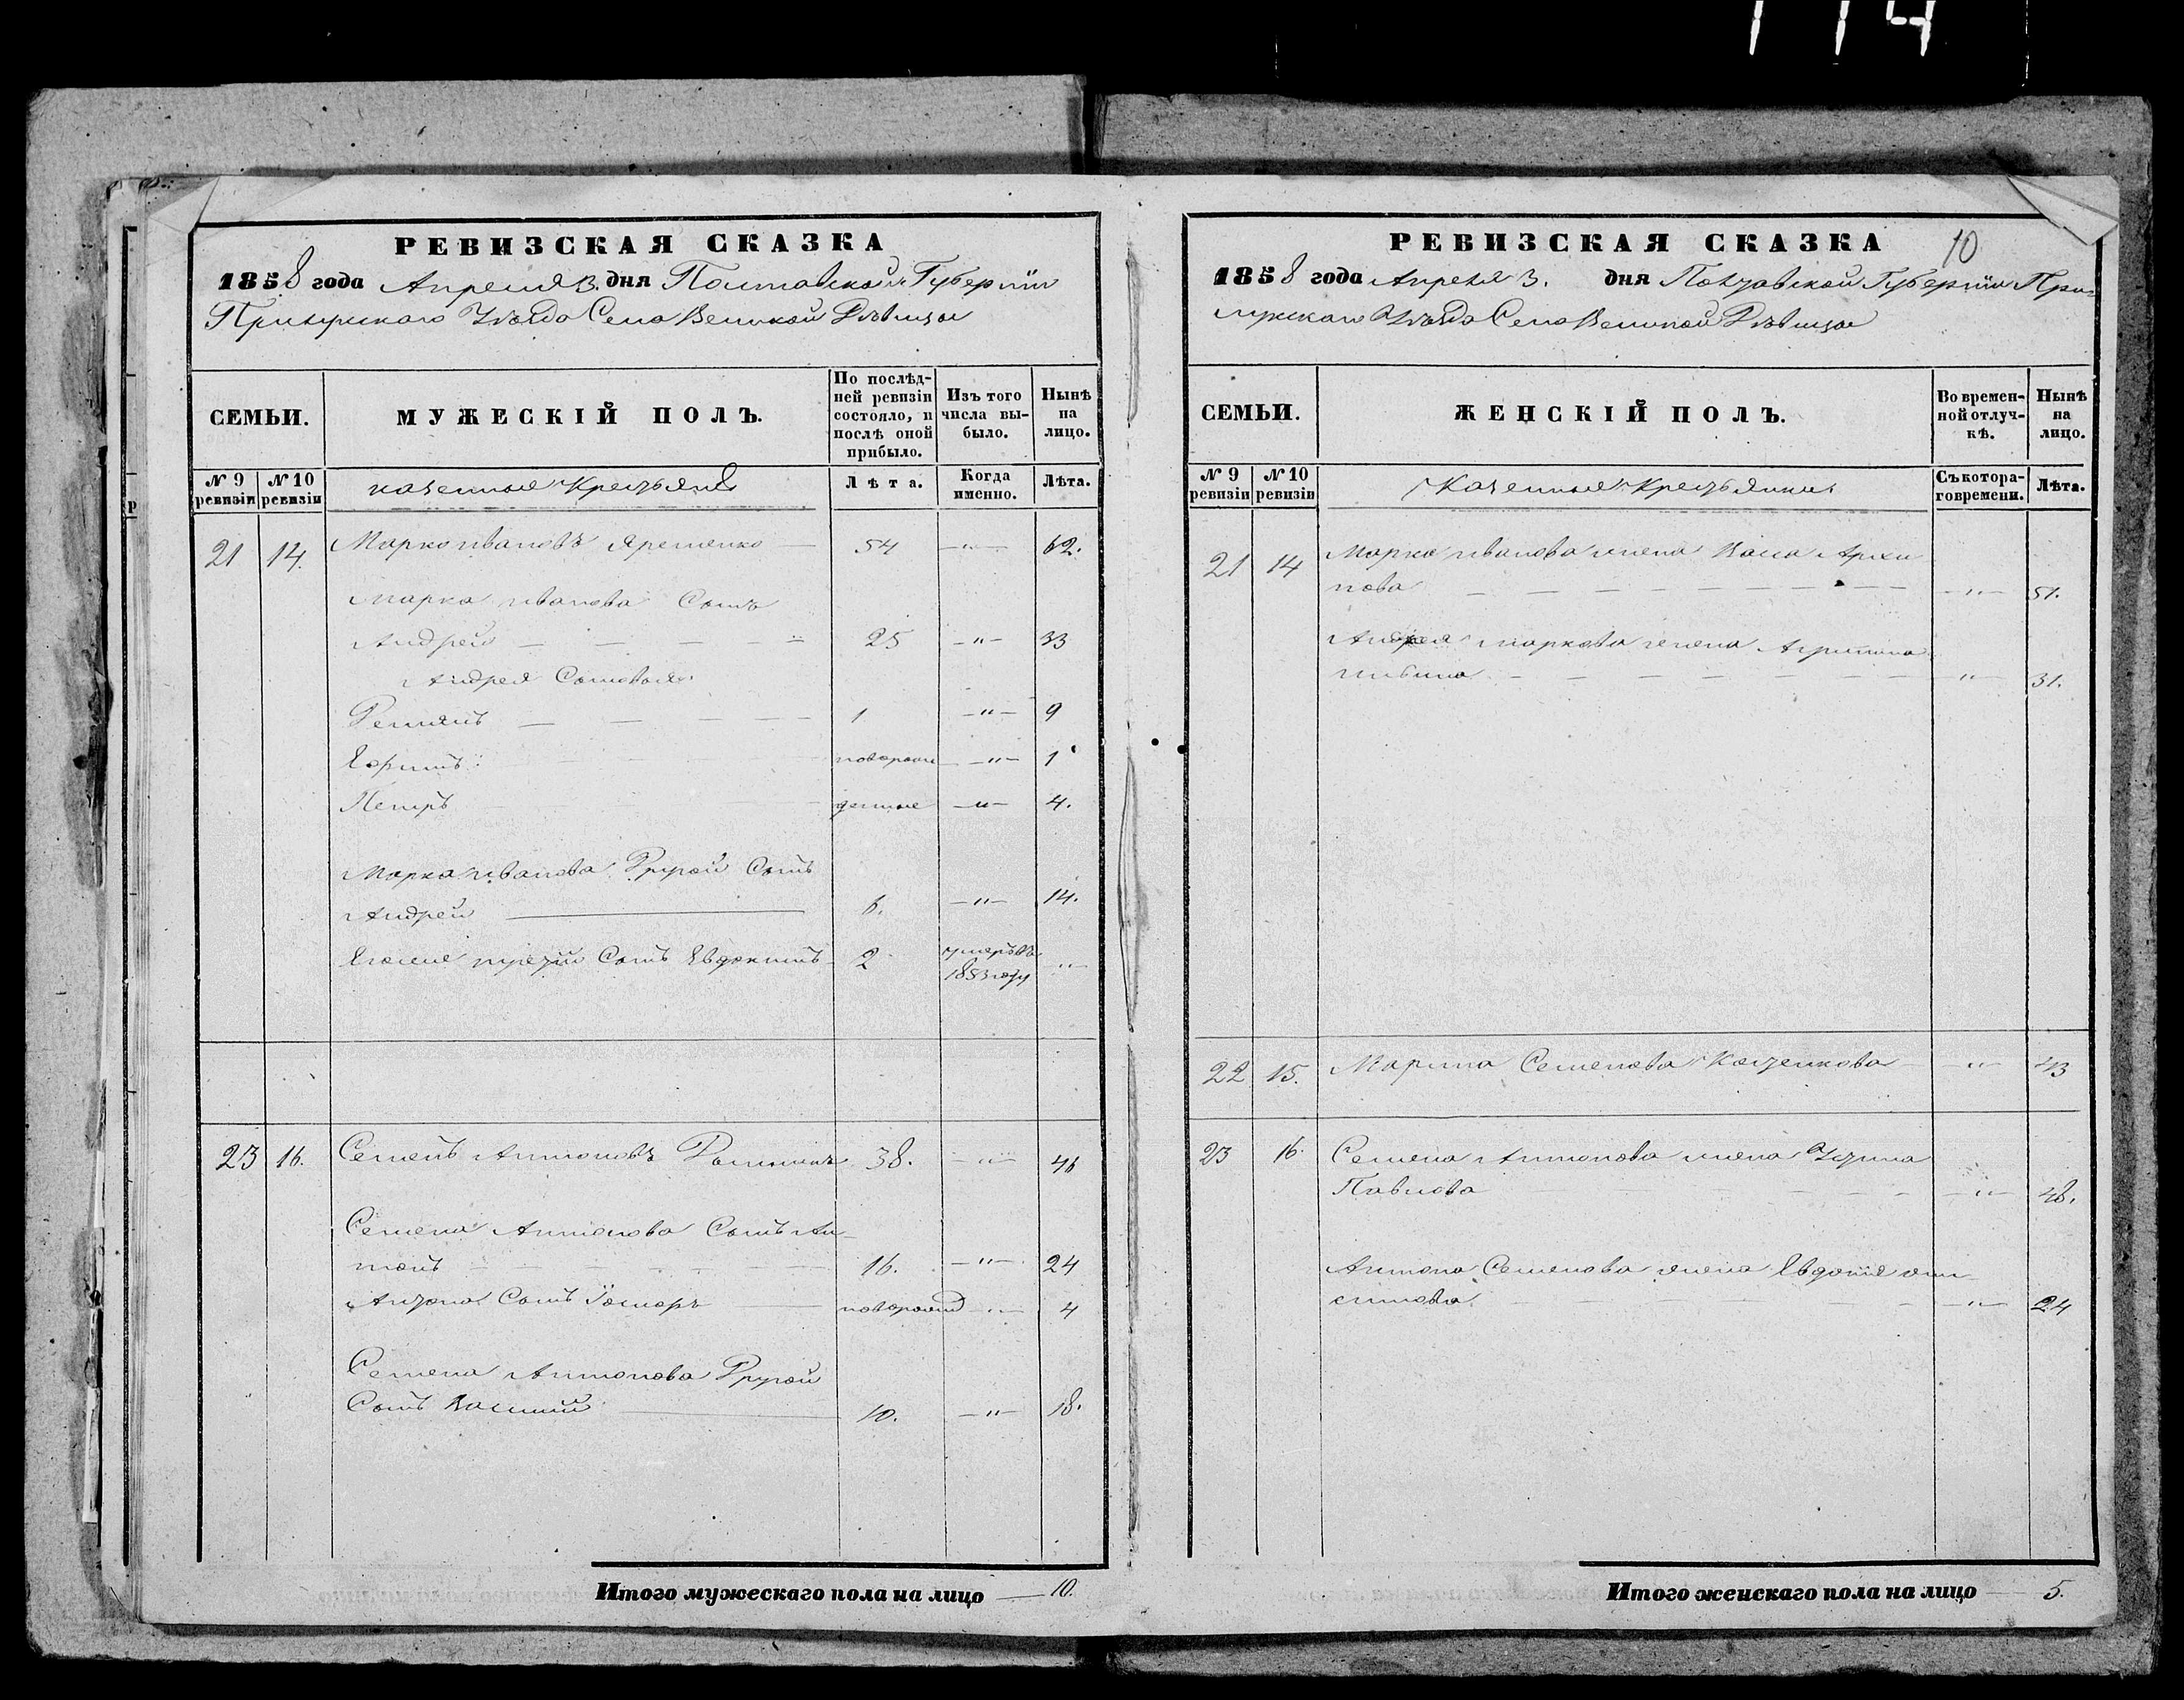 114
РЕВИЗСКАЯ СКАЗКА
1858 года Апреля 3. дня Полтавской Губерніи
Прилукского Уѣзда Села Великой Дѣвицы
СЕМЬИ.
МУЖЕСКІЙ ПОЛЪ.
По послѣд-
ней ревизіи
состояло, и
послѣ оной
прибыло.
Изъ того
числа вы-
было.
Нынѣ
на
лицо.
№ 9 ревизіи
№ 10 ревизіи
казенные Крестьяне
Лѣта.
Когда именно.
Лѣта.
21 14. Марко Ивановъ Яременко 54 —"— 62.
Марка Иванова Сынъ
Андрей 25 —"— 33
Андрея Сыновья:
Демянъ 1 —"— 9
Ефимъ новорож —"— 1
Петръ денные —"— 4.
Марка Иванова Другой Сынъ
Андрей 6. —"— 14.
Егоже третій Сынъ Евдокимъ 2 умеръ въ "
1853 году
23 16. Семенъ Антоновъ 38. —"— 46
Семена Антонова Сынъ Ан-
тонъ 16. —"— 24
Антона Сынъ новорожд —"— 4
Семена Антонова Другой
Сынъ Василій 10. —"— 18.
Итого мужескаго пола на лицо — 10.
РЕВИЗСКАЯ СКАЗКА 10
1858 года Апреля 3. дня Полтавской Губерніи При-
лукскаго Уѣзда Села Великой Дѣвицы
СЕМЬИ.
ЖЕНСКІЙ ПОЛЪ.
Во времен-
ной отлуч-
кѣ.
Нынѣ
на
лицо.
№ 9 ревизіи
№ 10 ревизіи
Казенныя Крестьянки
Съ котора-
го времени.
Лѣта.
21 14 Марка Иванова жена Васа Архи
пова —"— 51.
Андрея Маркова жена Агрипина
—"— 31.
22 15. Марина Семенова Костенкова —"— 43
23 16. Семена Антонова жена Устина
Павлова —"— 48.
Антона Семенова жена Евдокія
симова —"— 24
Итого женскаго пола на лицо — 5.